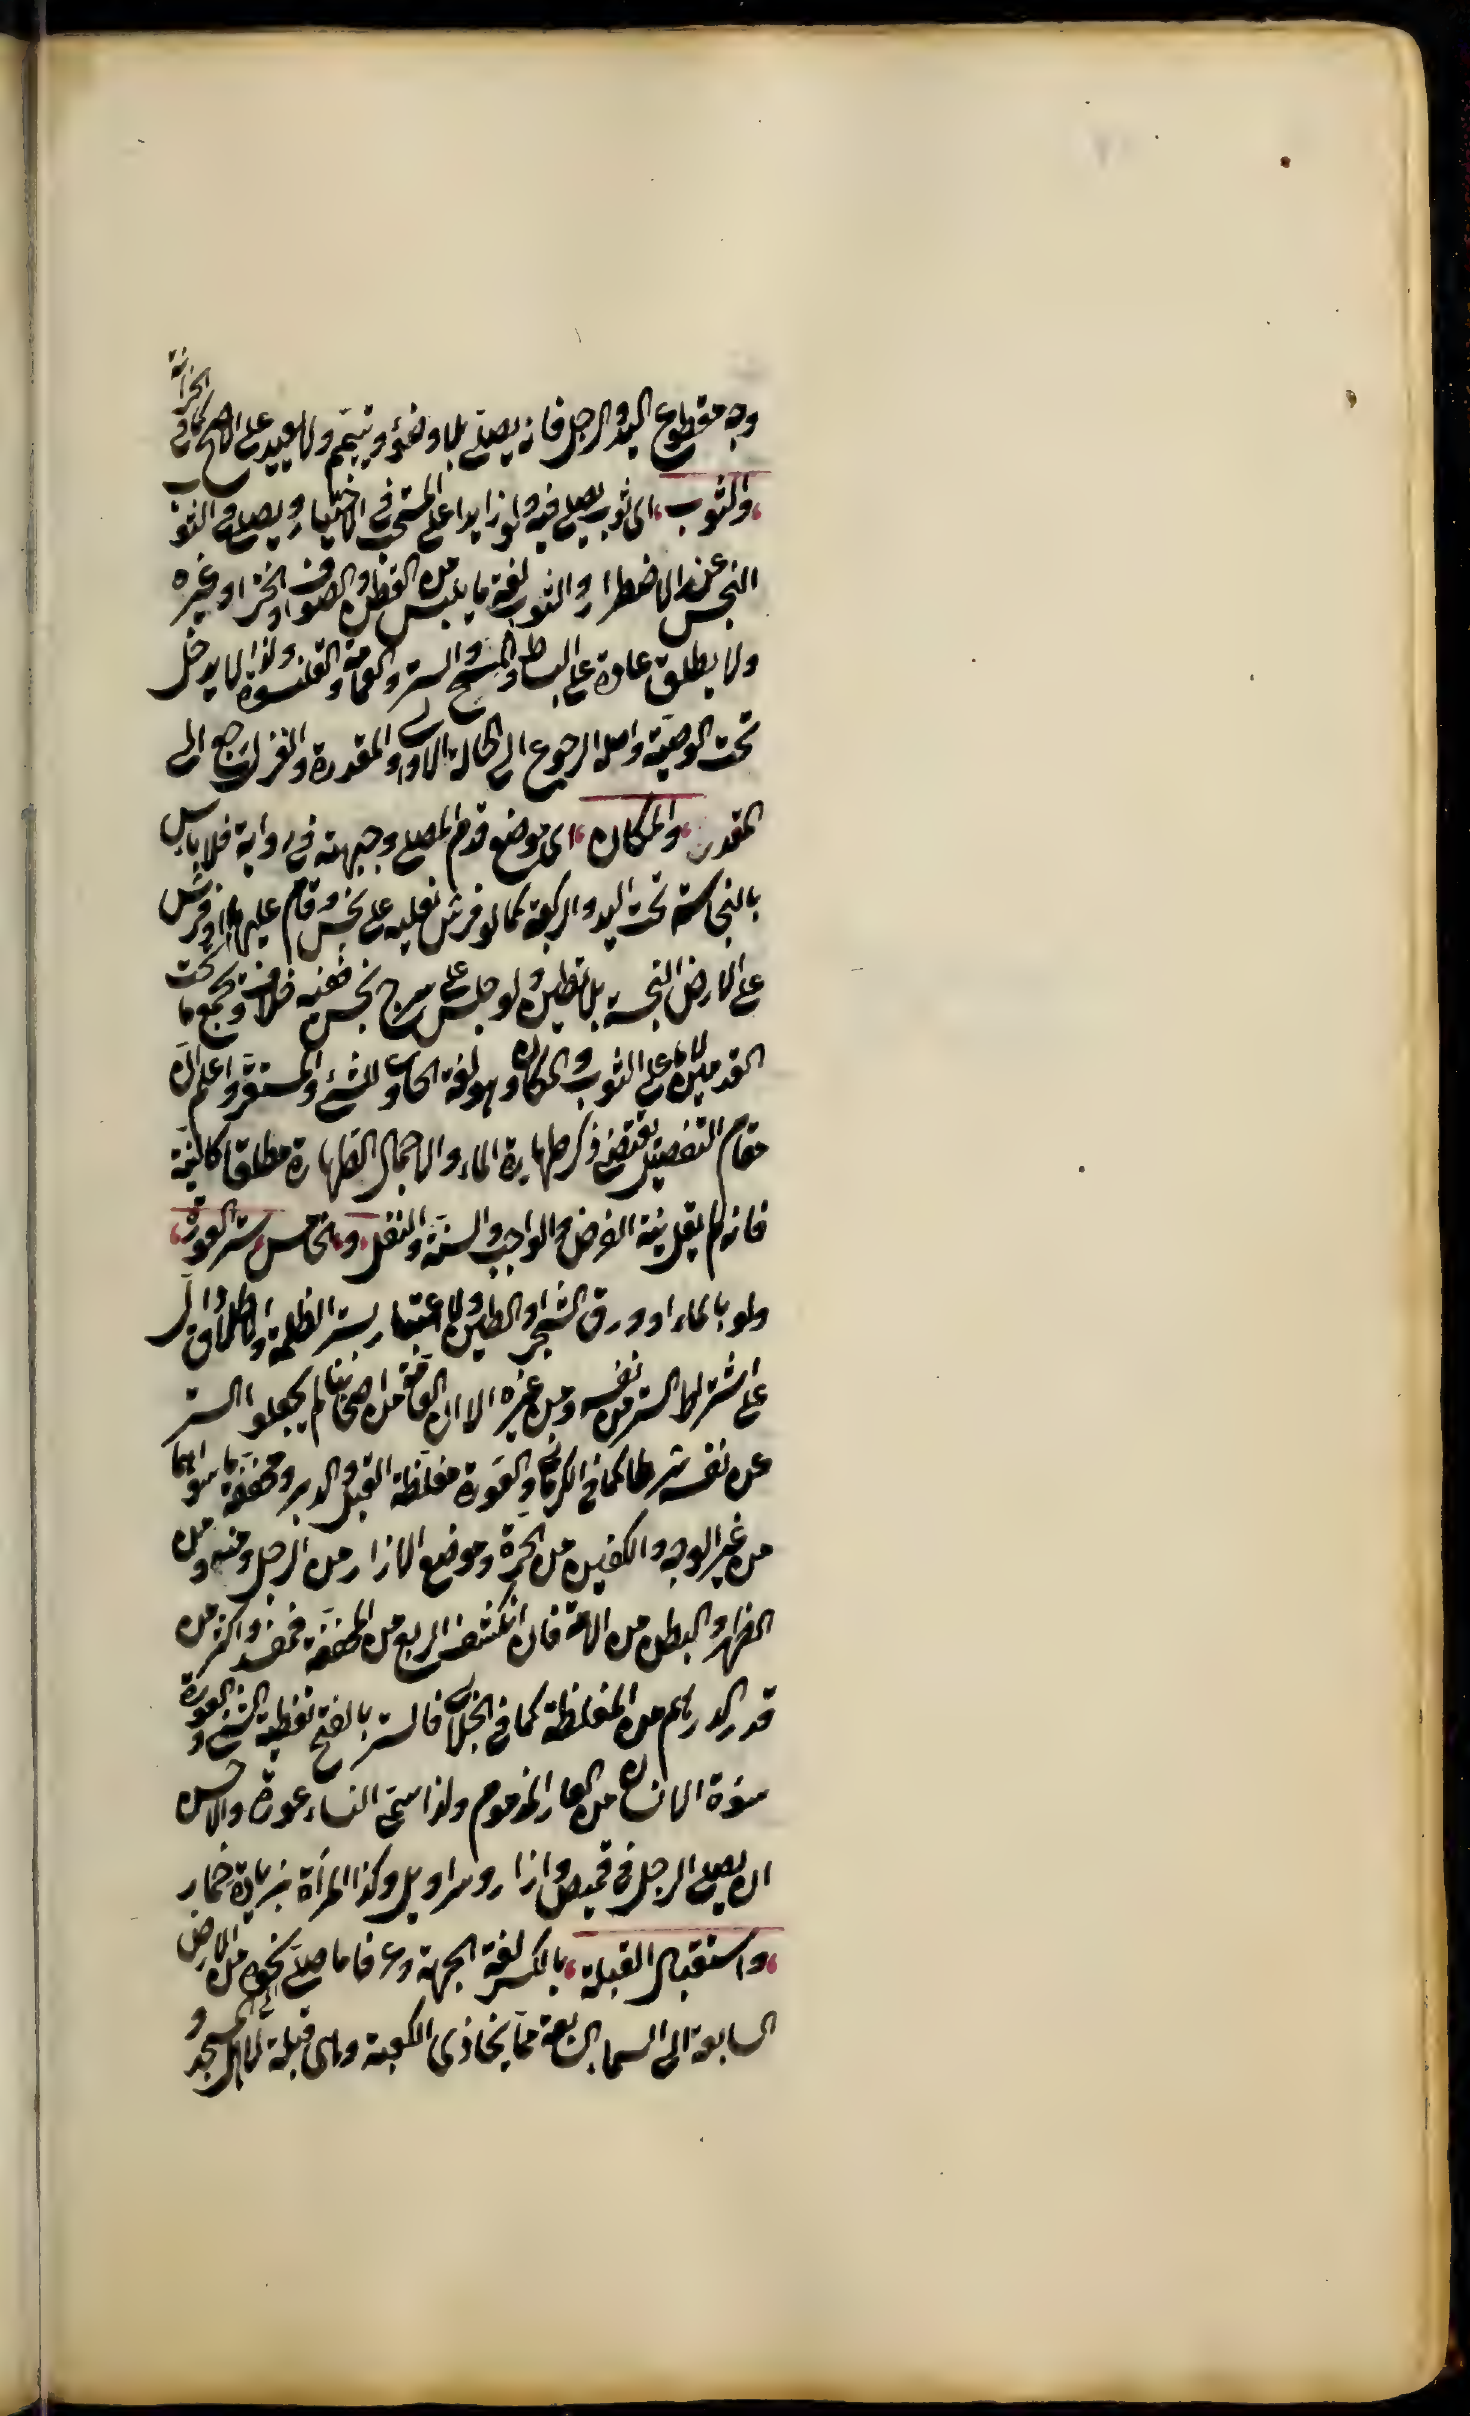 وجه مقطوع اليد والرجل فانه يصلي بلا وضوء وتيمم ولا يعيد على الاصح كما في الخزانة
والثوب اى ثوب يصلي فيه ولو زايدا على المستحب في الاختيار ويصلي في الثوب
النجس عند الاضطرار والثوب لغة ما يلبس من القطن والصوف والخز او غيره
ولا يطلق عادة على البساط والمسح والستر والعمامة والقلنسوة ولذا لا يدخل
تحت الوصية واصله الرجوع الى الحالة الاولى او المقدرة والغزل رجع الى
المقدرة والمكان اى موضع قدم المصلي وجبهته في رواية فلا باس
بالنجاسة تحت اليد والركبة كما لو فرش نعليه على نجس وقام عليهما او فرش
على الارض النجسة بلا تطيين ولو جلس على سرج نجس ففيه خلاف ويجمع ما تحت
القدمين لا ما على الثوب والمكان وهو لغة الحاوى للشئ والمستقر واعلم ان
مقام التفصيل يقتضى ذكر طهارة الماء والاجمال الطهارة مطلقا كالنية
فانه لم يقل نية الفرض والواجب والسنة والنفل والخامس ستر العورة
ولو بالماء او ورق الشجر او الطين ولا اعتبار بستر الظلمة والاطلاق دال
على اشتراط الستر من نفسه ومن غيره الا ان العامة من اصحابنا لم يجعلوا الستر
عن نفسه شرطا كما في الكرماني والعورة مغلظة القبل والدبر ومخففة ما سواهما
من غير الوجه والكفين من الحرة وموضع الازار من الرجل ومنه ومن
الظهر والبطن من الامة فان انكشف الربع من المخففة فمفسد واكثر من
قدر الدرهم من المغلظة كما في الجلابي فالستر بالفتح تغطية الشئ والعورة
سوءة الانسان من العار المذموم ولذا سمى النساء عورة والاحسن
ان يصلي الرجل في قميص وازار وسراويل وكذا المرأة بزيادة خمار
واستقبال القبلة بالكسر لغة الجهة وعرفا ما صلي نحوه من الارض
السابعة الى السماء السابعة مما يحاذى الكعبة وهى قبلة لاهل المسجد و